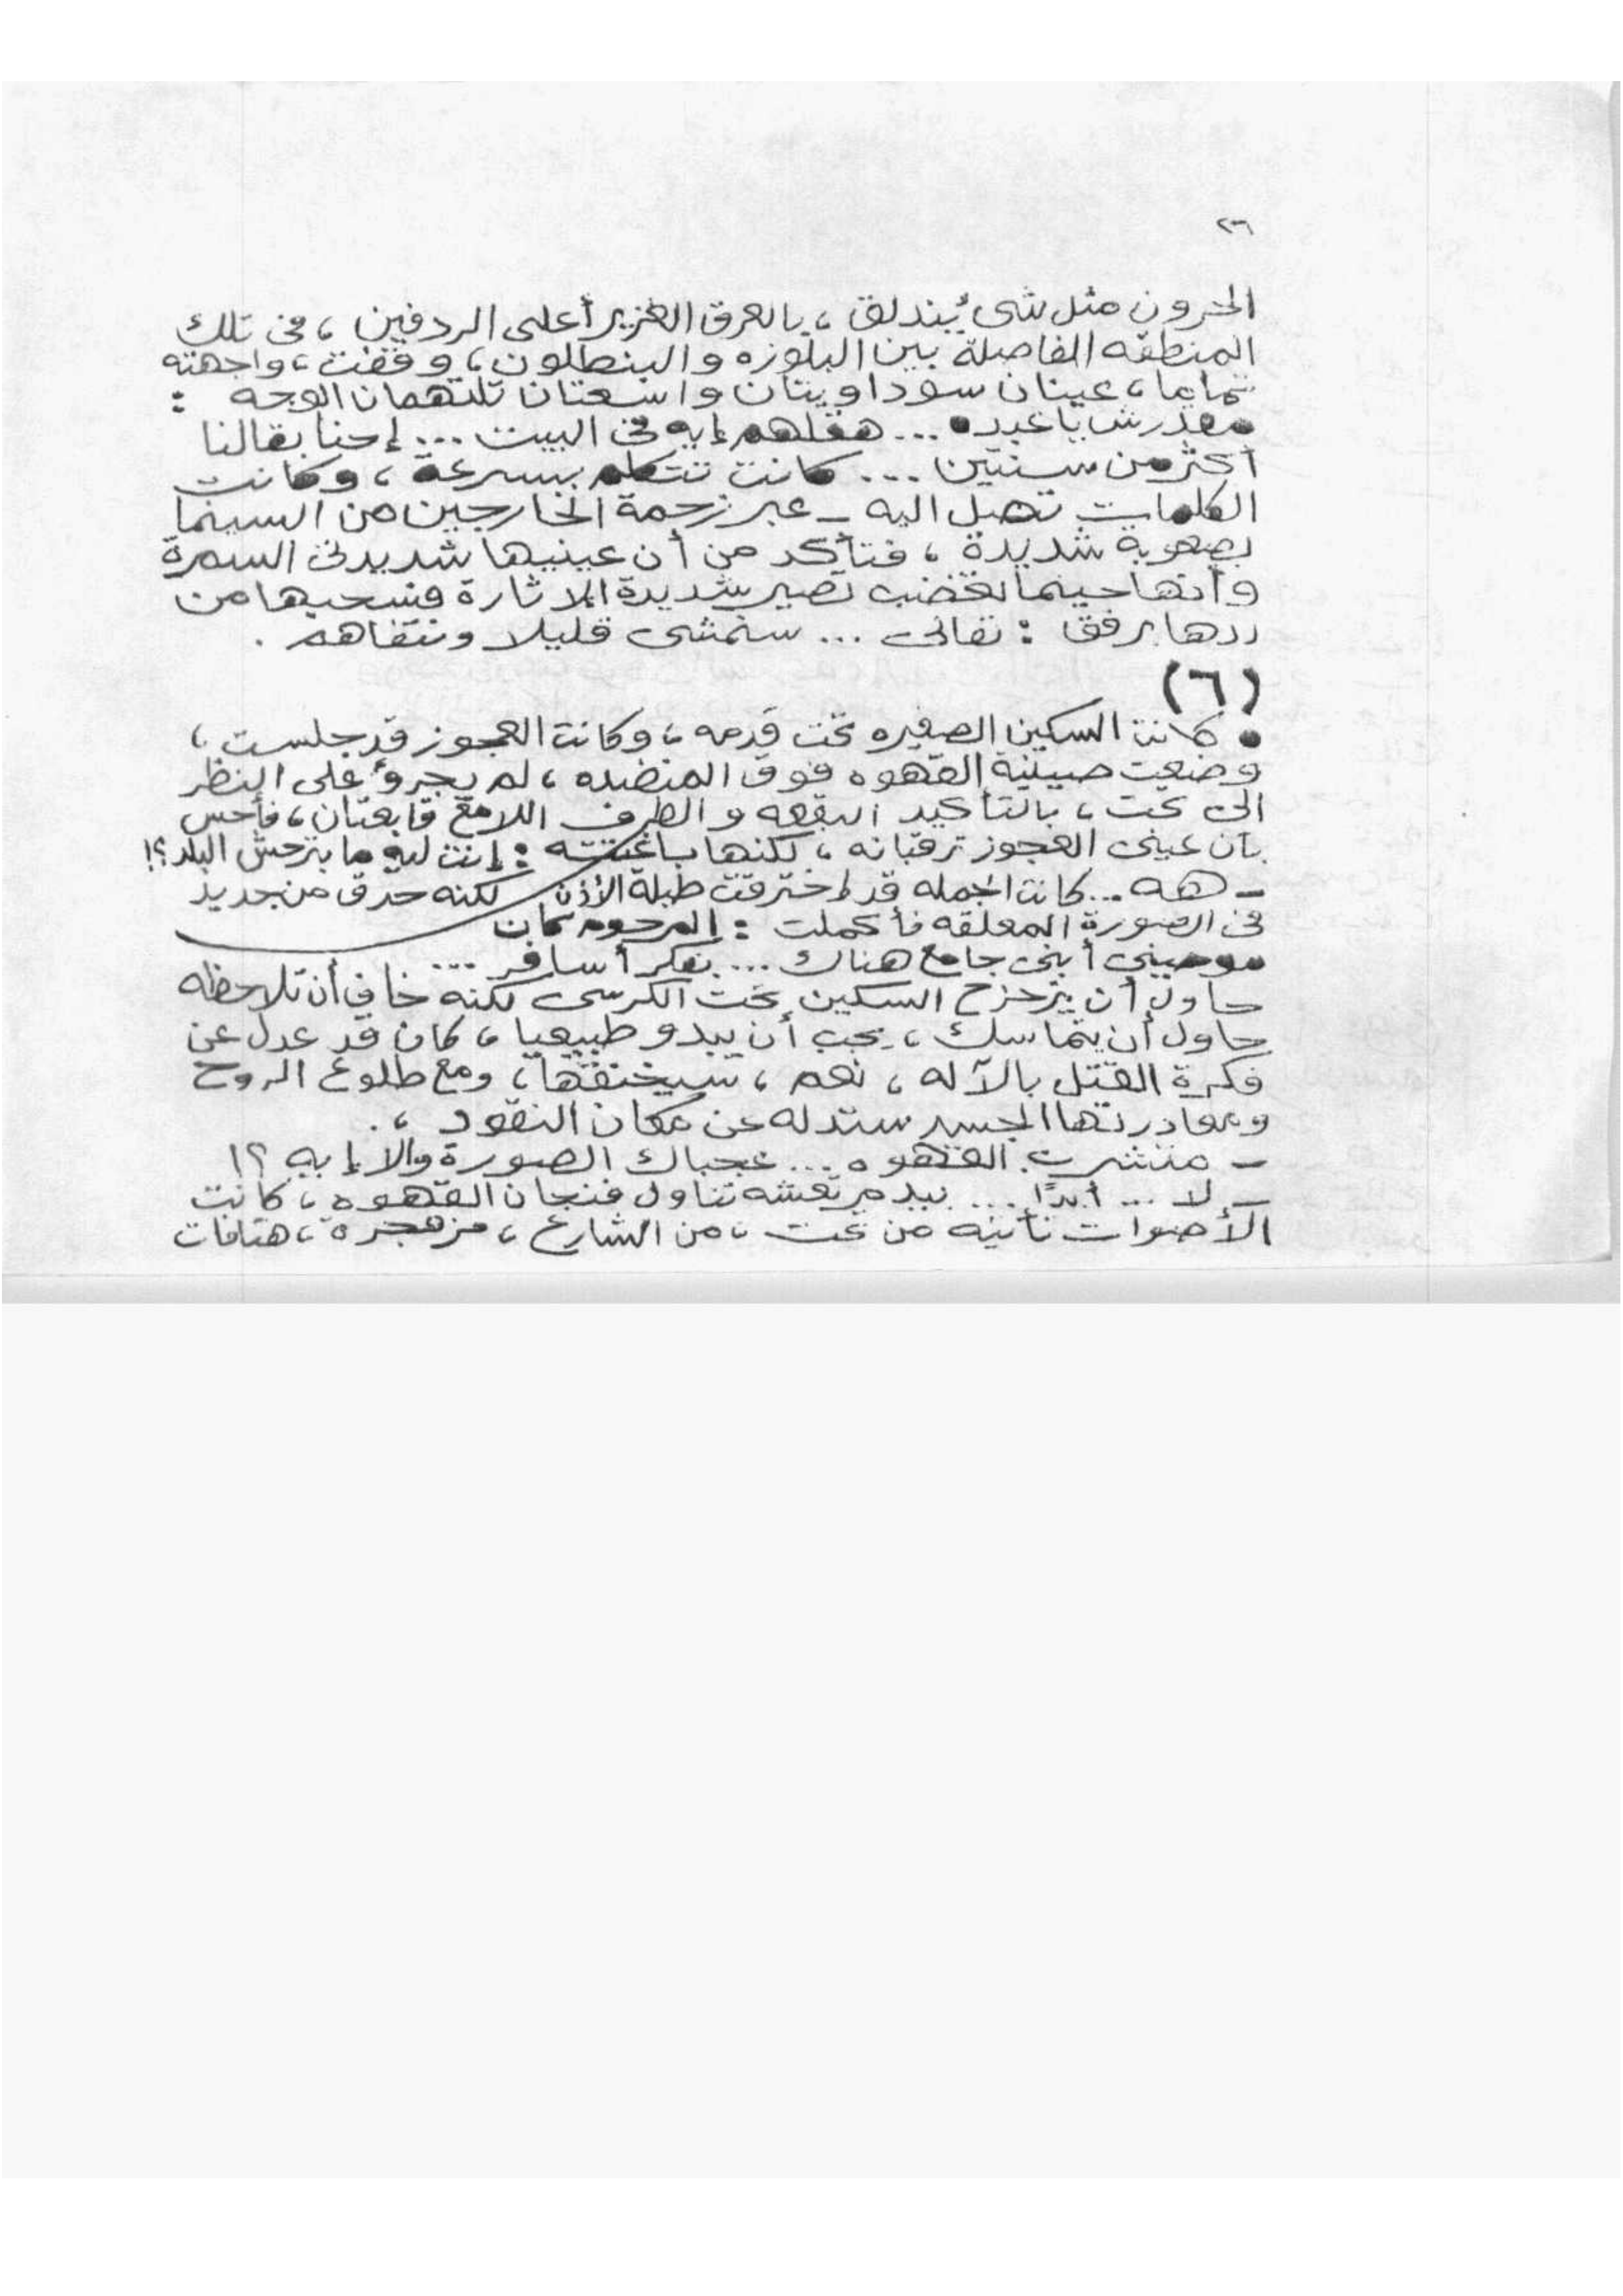 ٢٦
الحرون مثل شئ يُبندلق ، بالعرق الغزير أعلى الردفين ، فى تلك
المنطقه الفاصلة بين البلوزه والبنطلون ، وقفت ، واجهته
تماما ، عينان سوداويتان واسعتان تلتهمان الوجه :
مقدرش ياعبده ... هقلهم إيه فى البيت ... إحنا بقالنا
أكثر من سنتين ... كانت تتكلم بسرعة ، وكانت
الكلمات تصل اليه – عبر زحمة الخارجين من السينما
بصعوبة شديدة ، فتأكد من أن عينيها شديدتى السمرة
وأنها حينما تغضب تصير شديدة الاثارة فسحبها من
يدها برفق : تعالى ... سنمشى قليلا ونتفاهم .
(٦)
● كانت السكين الصغيره تحت قدمه ، وكانت العجوز قد جلست ،
وضعت صينية القهوه فوق المنضده ، لم يجرؤ على النظر
الى تحت ، بالتأكيد البقعه والطرف اللامع قابعتان ، فأحس
بأن عينى العجوز ترقبانه ، لكنها باغتته : إنت ليه ما بترحش البلد ؟!
– هه ... كانت الجمله قد اخترقت طبلة الأذن لكنه حدق من جديد
فى الصورة المعلقه فأكملت : المرحوم كان
موصينى أبنى جامع هناك ... بفكر أسافر ...
حاول أن يزحزح السكين تحت الكرسى لكنه خاف أن تلاحظه
حاول أن يتماسك ، يجب أن يبدو طبيعيا ، كان قد عدل عن
فكرة القتل بالآله ، نعم ، سيخنقها ، ومع طلوع الروح
ومغادرتها الجسد ستدله عن مكان النقود ، .
– منشربت القهوه ... عجباك الصورة والا إيه ؟!
– لا ... أبدًا ... بيد مرتعشه تناول فنجان القهوه ، كانت
الأصوات تأتيه من تحت ، من الشارع ، مزمجرة ، هتافات